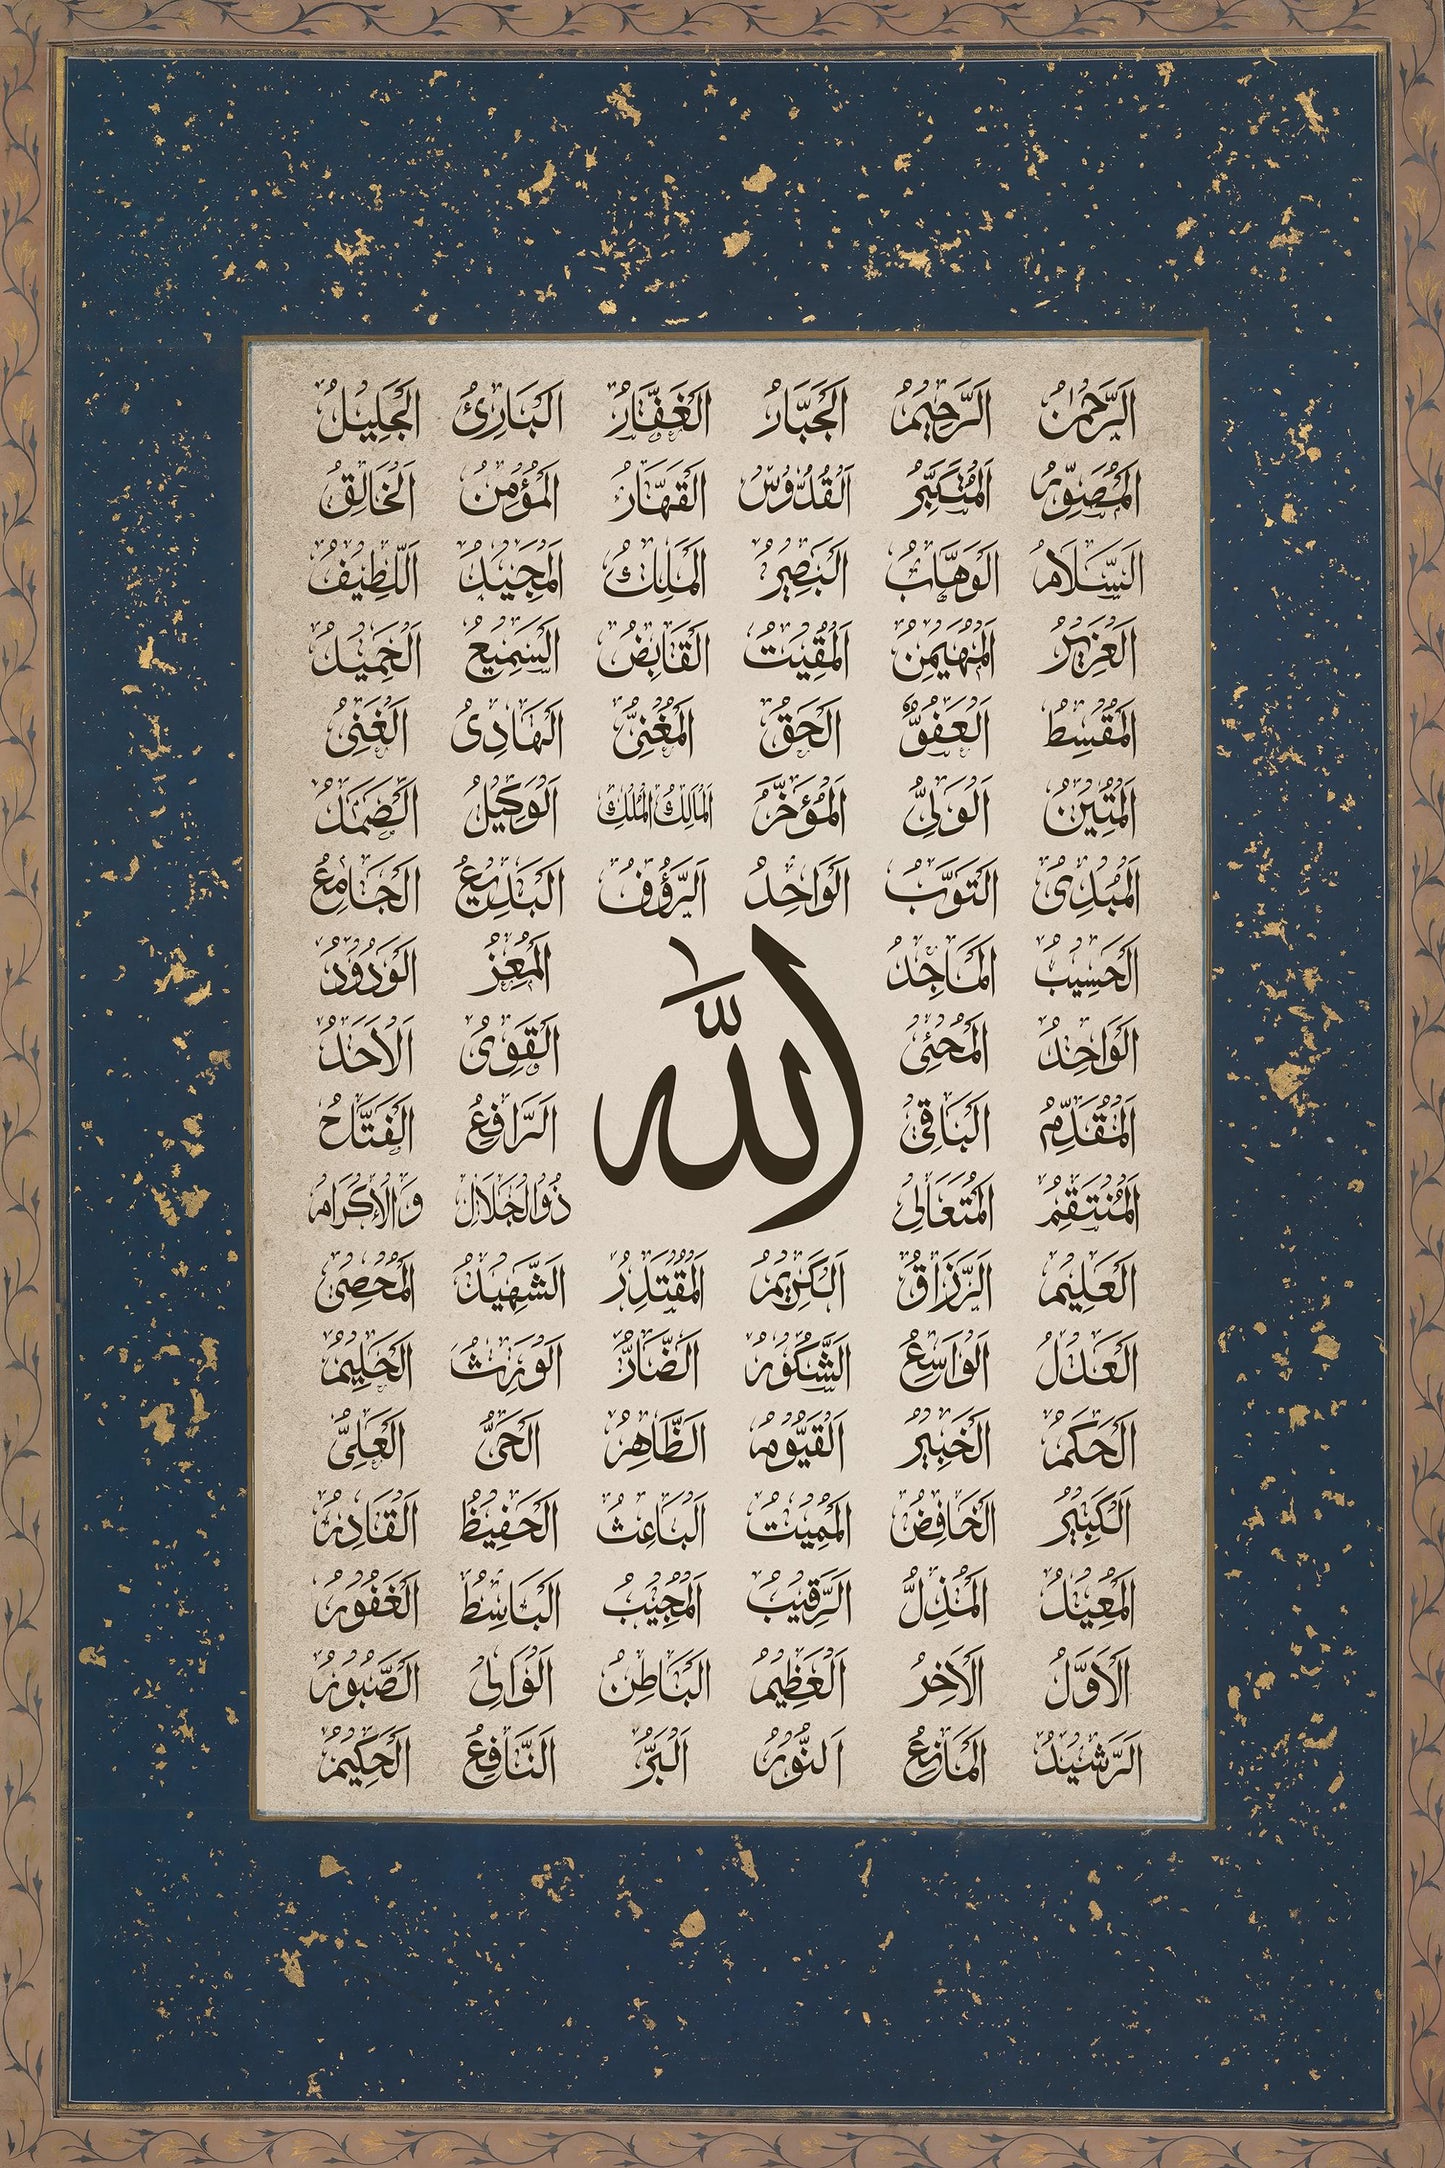 الرَّحْمٰنُ الرَّحِيمُ الجَبَّارُ الغَفَّارُ البَارِئُ الجَلِيلُ
المُصَوِّرُ المُتَكَبِّرُ القُدُّوسُ القَهَّارُ المُؤْمِنُ الخَالِقُ
السَّلَامُ الوَهَّابُ البَصِيرُ المَلِكُ المَجِيدُ اللَّطِيفُ
العَزِيزُ المُهَيْمِنُ المُقِيتُ القَابِضُ السَّمِيعُ
المُقْسِطُ العَفُوُّ الحَقُّ المُغْنِىُّ الهَادِىُ الغَنِىُ
المَتِينُ الوَلِىُّ المُؤَخِّرُ المَالِكُ المُلْكِ الوَكِيلُ الصَّمَدُ
المُبْدِئُ التَوَّبُ الوَاحِدُ الرَّؤُوفُ البَدِيعُ الجَامِعُ
الحَسِيبُ المَاجِدُ المُعِزُ الوَدُودُ
الله
الوَاحِدُ المُحْيِى القَوِىُ الأَحَدُ
المُقَدِّمُ البَاقِى الرَّافِعُ الفَتَّاحُ
المُنْتَقِمُ المُتَعَالِى ذُوالجَلَالِ وَالْإِكْرَامِ
العَلِيمُ الرَّزَّاقُ الكَرِيمُ المُقْتَدِرُ الشَّهِيدُ المُحْصِى
العَدْلُ الوَاسِعُ الشَّكُورُ الضَّارُّ الوَرِثُ الحَلِيمُ
الحَكَمُ الخَبِيرُ القَيُّومُ الظَّاهِرُ الحَىُّ العَلِىُّ
الكَبِيرُ الخَافِضُ المُمِيتُ البَاعِثُ الحَفِيظُ القَادِرُ
المُعِيدُ المُذِلُّ الرَّقِيبُ المُجِيبُ البَاسِطُ الغَفُورُ
الأَوَّلُ الآخِرُ العَظِيمُ البَاطِنُ الوَالِى الصَّبُورُ
الرَّشِيدُ المَانِعُ النُّورُ البَرُّ النَّافِعُ الحَكِيمُ